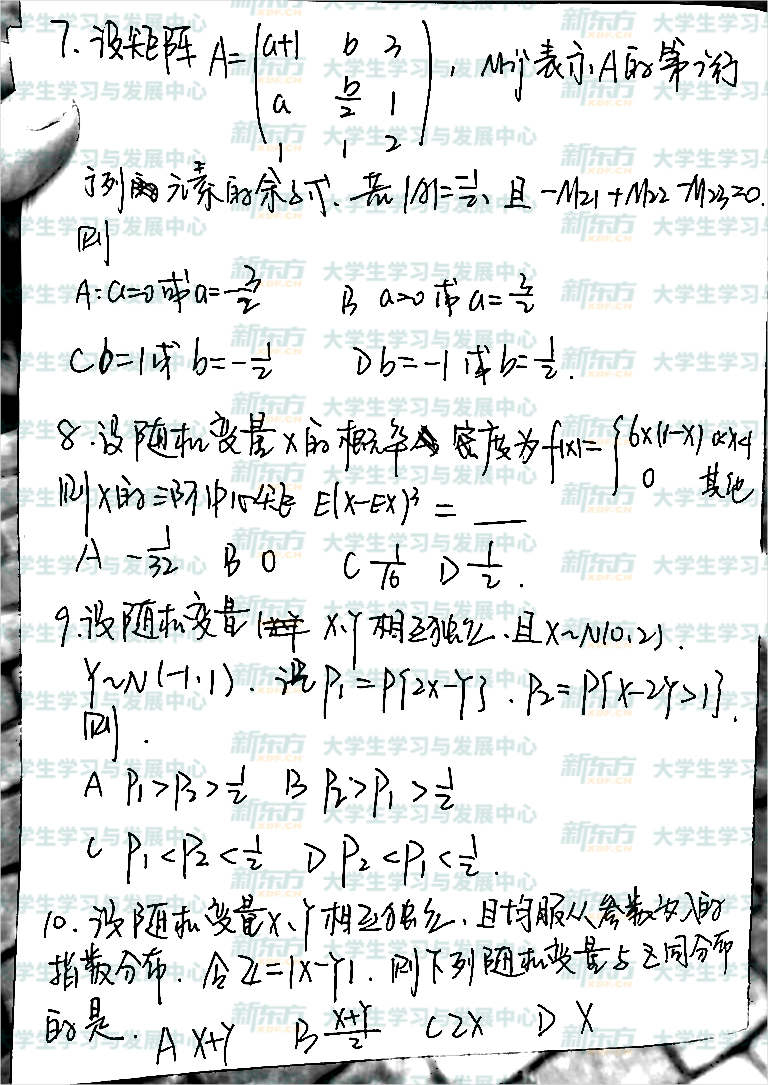 7. 设矩阵 A=(a+1 b 3
a b/2 1
1 1 2), Mij表示A的第i行
j列元素的余子式. 若|A|=-1/2, 且 -M21+M22-M23=0.
则
A: a=0或a=-3/2 B a=0或a=3/2
C b=1或b=-1/2 D b=-1或b=1/2.
8. 设随机变量X的概率密度为f(x)={6x(1-x) 0<x<1
0 其他
则X的三阶中心矩 E(X-EX)³=___
A -1/32 B 0 C 1/16 D 1/2.
9. 设随机变量 X、Y相互独立, 且X~N(0,2).
Y~N(-1,1). 设P1=P{2X-Y}. P2=P{X-2Y>1}.
则.
A P1>P2>1/2 B P2>P1>1/2
C P1<P2<1/2 D P2<P1<1/2.
10. 设随机变量X、Y相互独立, 且均服从参数为λ的
指数分布. 令Z=|X-Y|. 则下列随机变量与Z同分布
的是.
A X+Y B (X+Y)/2 C 2X D X
新东方 XDF.CN 大学生学习与发展中心